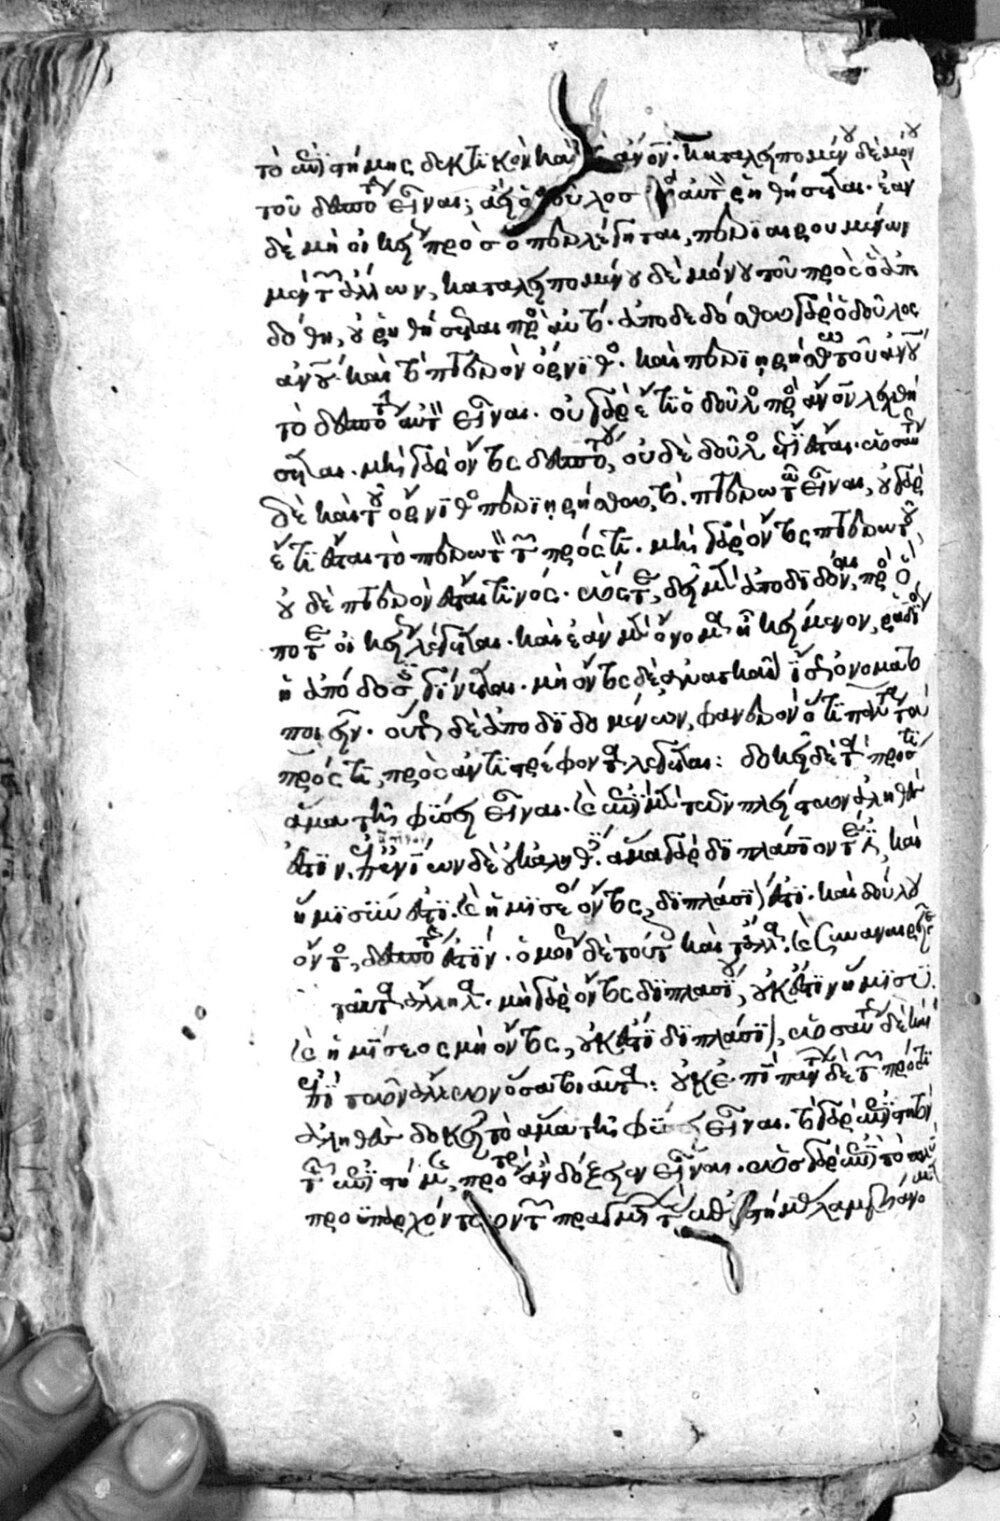 τὸ ἐπιστήμης δεκτικὸν καὶ ἄνον· καταλειπομένου δὲ μόνου
τοῦ δεσπότην εἶναι; ἀεὶ ὁ δοῦλος πρὸς αὐτὸ ῥηθήσεται· ἐὰν
δὲ μὴ οἰκείως πρὸς ὃ ποτε λέγηται, περιαιρουμένων
μὲν τῶν ἄλλων, καταλειπομένου δὲ μόνου τοῦ πρὸς ὃ ἀπε
δόθη, οὐ ῥηθήσεται πρὸς αὐτό· ἀποδεδόσθω γὰρ ὁ δοῦλος
ἀνου· καὶ τὸ πτερὸν ὄρνιθος· καὶ περιῃρήσθω τοῦ ἀνου
τὸ δεσπότην αὐτὸν εἶναι· οὐ γὰρ ἔτι ὁ δοῦλος πρὸς ἄνον λεχθή
σεται· μὴ γὰρ ὄντος δεσπότου, οὐδὲ δοῦλος ἐστίν· ὡσαύτως
δὲ καὶ τοῦ ὄρνιθος περιῃρήσθω, τὸ πτερωτῶ εἶναι, οὐ γὰρ
ἔτι ἔσται τὸ πτερωτὸν τῶν πρός τι· μὴ γὰρ ὄντος πτερωτοῦ
οὐδὲ πτερὸν ἔσται τινός· ὥστε, δεῖ μὲν ἀποδιδόναι, πρὸς ὅ
ποτε οἰκείως λέγεται· καὶ ἐὰν μὲν ὄνομα ἦ κείμενον, ῥαδία
ἡ ἀπόδοσις γίνεται· μὴ ὄντος δὲ ἀναγκαῖον ἴσως ὀνοματο
ποιεῖν· οὕτως δὲ ἀποδιδομένων, φανερὸν ὅτι πάντα τὰ
πρός τι, πρὸς ἀντιστρέφοντα λέγεται: δοκεῖ δὲ τὰ πρός τι
ἅμα τῇ φύσει εἶναι· καὶ ἐπὶ μὲν τῶν πλείστων ἀληθές
ἐστιν. ἐπ' ἐνίων δὲ οὐκ ἀληθές· ἅμα γὰρ διπλάσιόν τέ ἐστι, καὶ
ἥμισύ ἐστι· καὶ ἡμίσεος ὄντος, διπλάσιον ἐστί· καὶ δούλου
ὄντος, δεσπότης ἐστίν· ὁμοίως δὲ τούτοις καὶ τὰ ἄλλα· καὶ συναναιρεῖ
ταῦτα ἄλληλα· μὴ γὰρ ὄντος διπλασίου, οὐκ ἔστιν ἥμισυ·
καὶ ἡμίσεος μὴ ὄντος, οὐκ ἔστι διπλάσιον, ὡσαύτως δὲ καὶ
ἐπὶ τῶν ἄλλων ὅσα τοιαῦτα: οὐκ ἐπὶ πάντων δὲ τῶν πρός τι
ἀληθὲς δοκεῖ τὸ ἅμα τῇ φύσει εἶναι· τὸ γὰρ ἐπιστητὸν
τῆς ἐπιστήμης, πρότερον ἂν δόξειεν εἶναι· ὡς γὰρ ἐπὶ τὸ πολὺ
προϋπαρχόντων τῶν πραγμάτων τὰς ἐπιστήμας λαμβάνομεν